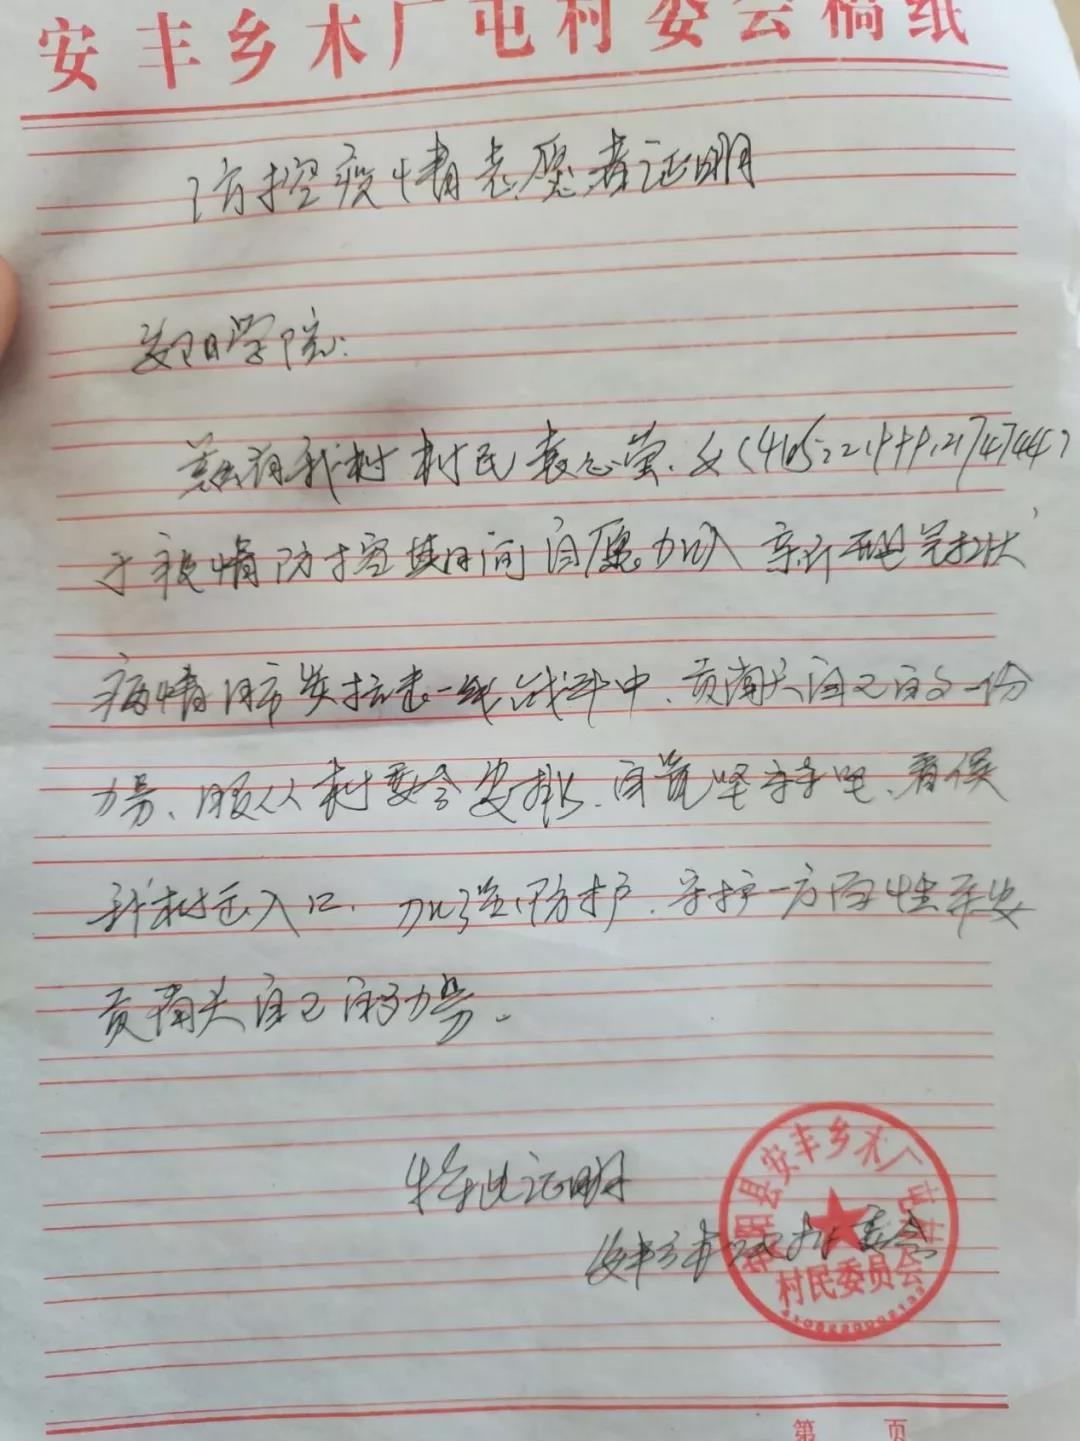 安丰乡木厂屯村委会稿纸
防控疫情志愿者证明
学院:
兹有我村村民袁心莹,女
于疫情防控期间自愿加入新型冠状
病情肺炎抗击一线战斗中,贡献天自己的一份
力量、服从村委会安排,自觉坚守
我村出入口,加强防护,守护一方百姓平安
贡献天自己的力量。
特此证明
安丰乡木厂屯村委会
安阳县安丰乡木厂屯村
村民委员会
第 页